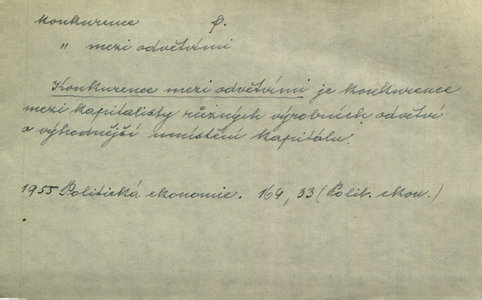 konkurence f.
" mezi odvětvími
Konkurence mezi odvětvími je konkurence
mezi kapitalisty různých výrobních odvětví
o výhodnější umístění kapitálu.
1955 Politická ekonomie. 169, 33 (Polit. ekon.)